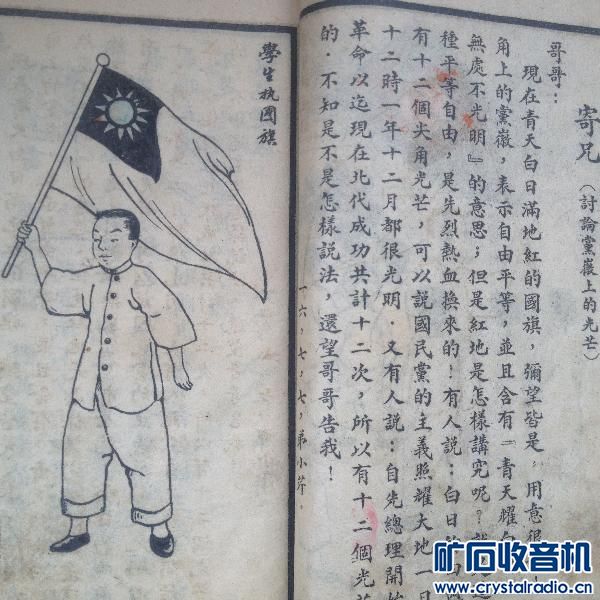 寄兄（討論黨徽上的光芒）
哥哥：
現在青天白日滿地紅的國旗，彌望皆是，用意很
角上的黨徽，表示自由平等，並且含有『青天耀白
無處不光明』的意思；但是紅地是怎樣講究呢？
種平等自由，是先烈熱血換來的！有人說：白日的
有十二個尖角光芒，可以說國民黨的主義照耀大地一日
十二時一年十二月都很光明．又有人說：自先總理開始
革命以迄現在北伐成功共計十二次，所以有十二個光芒
的．不知是不是怎樣說法，還望哥哥告我！
一六，七，七，弟小芹．
學生执國旗
矿石收音机
www.crystalradio.cn